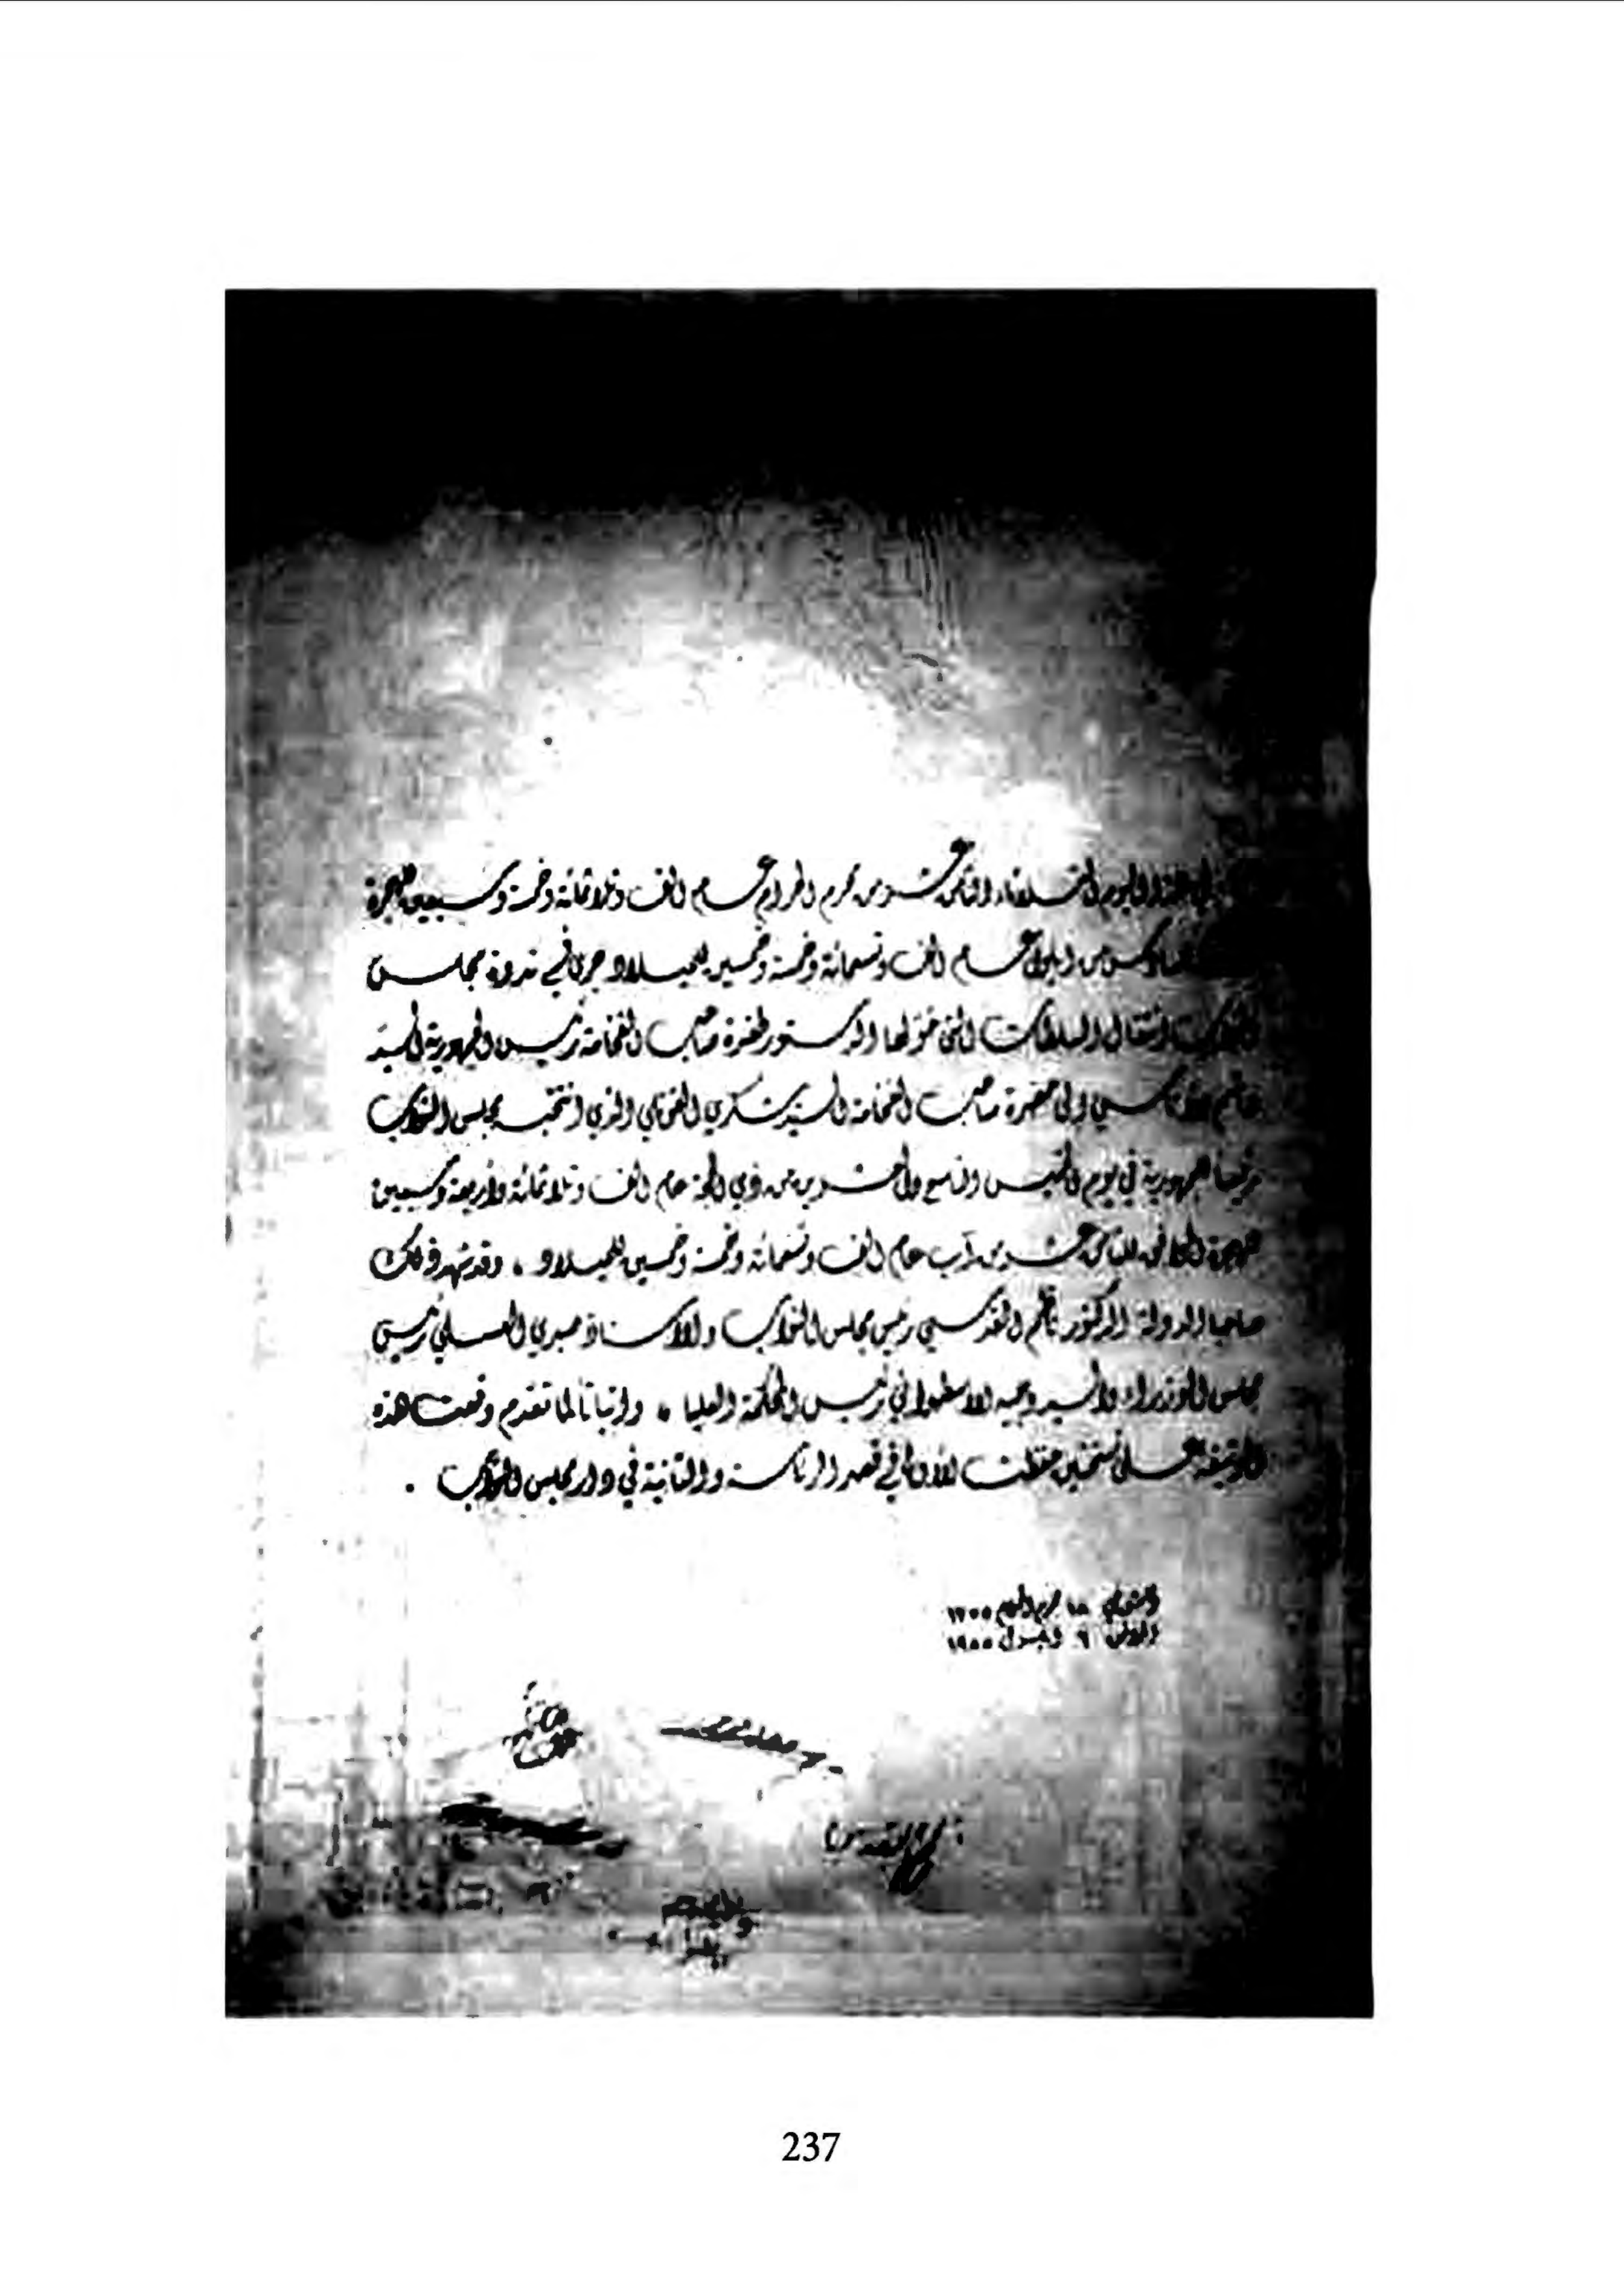 هذا اليوم الثلاثاء الثامن عشر من محرم الحرام عام الف وثلاثمائة وخمسة وسبعين للهجرة
السادس من ايلول عام الف وتسعمائة وخمسة وخمسين للميلاد جرى في ندوة مجلس
النواب انتقال السلطات التي خولها الدستور لحضرة صاحب الفخامة رئيس الجمهورية السيد
هاشم الاتاسي الى حضرة صاحب الفخامة السيد شكري القوتلي الذي انتخبه مجلس النواب
رئيسا للجمهورية في يوم الخميس التاسع والعشرين من ذي الحجة عام الف وثلاثمائة وأربعة وسبعين
للهجرة الموافق للثامن عشر من آب عام الف وتسعمائة وخمسة وخمسين للميلاد ، وقد شهد ذلك
صاحبا الدولة الدكتور ناظم القدسي رئيس مجلس النواب والاستاذ صبري العسلي رئيس
مجلس الوزراء والسيد وجيه الاسطواني رئيس المحكمة العليا ، واثباتا لما تقدم وقعت هذه
الوثيقة على نسختين حفظت الأولى في قصر الرئاسة والثانية في دار مجلس النواب .
دمشق في ١٨ محرم الحرام ١٣٧٥
الموافق ٦ ايلول ١٩٥٥
ناظم القدسي
237